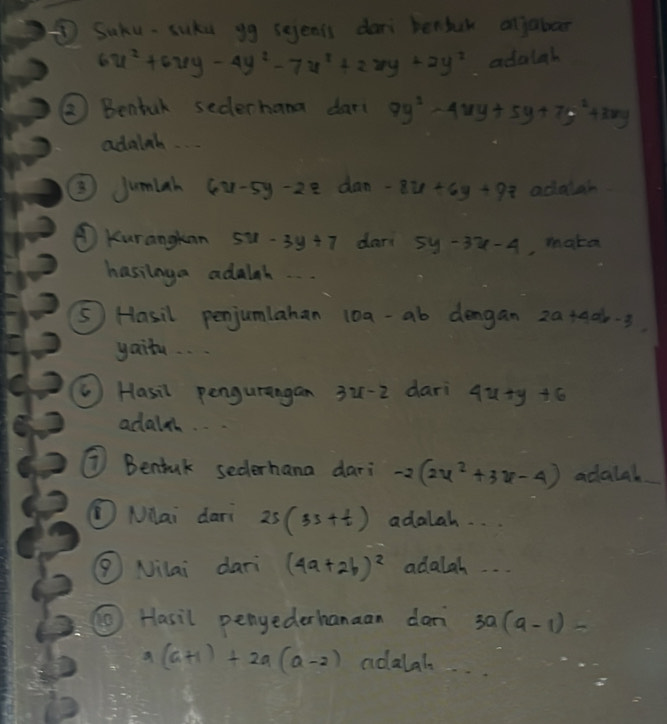 ① Suku-suku yg sejenis dari bentuk aljabar
6x² + 6xy - 4y² - 7x² + 2xy + 2y² adalah
② Bentuk sederhana dari 9y² - 4xy + 5y + 7y² + 3xy
adalah ...
③ Jumlah 6x - 5y - 2z dan - 8x + 6y + 9z adalah
④ Kurangkan 5x - 3y + 7 dari 5y - 3x - 4, maka
hasilnya adalah ...
⑤ Hasil penjumlahan 10a - ab dengan 2a + 4ab - 3,
yaitu ...
⑥ Hasil pengurangan 3x - 2 dari 4x + y + 6
adalah ...
⑦ Bentuk sederhana dari -2(2x² + 3x - 4) adalah...
⑧ Nilai dari 2s(3s + t) adalah ...
⑨ Nilai dari (4a + 2b)² adalah ...
⑩ Hasil penyederhanaan dari 3a(a - 1) -
a(a+1) + 2a(a - 2) adalah ...